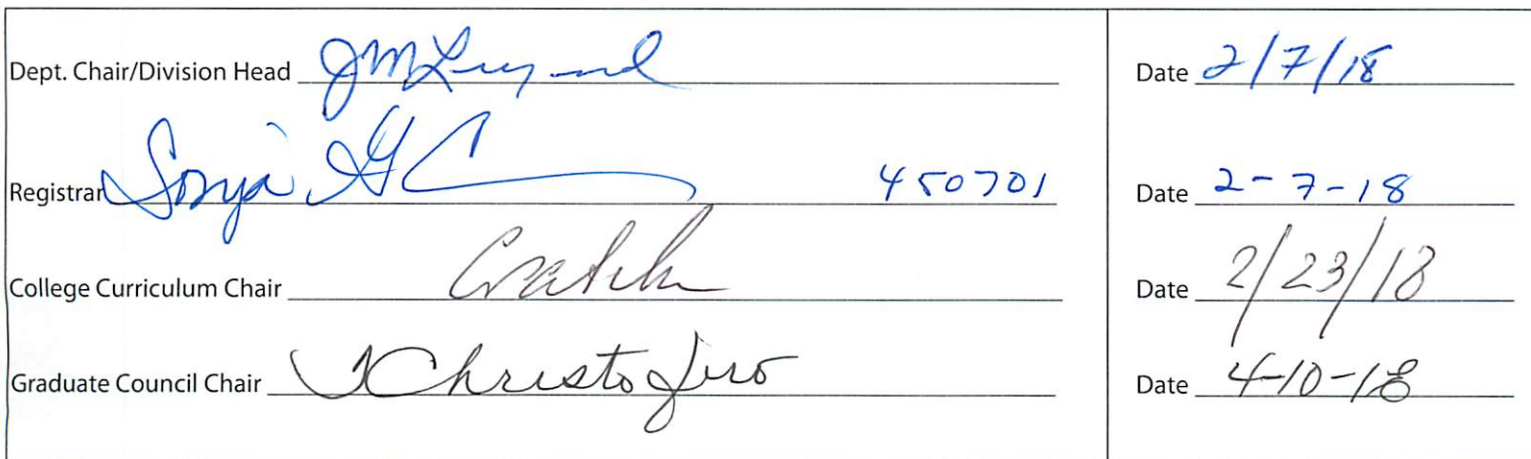 Dept. Chair/Division Head Date 2/7/18
Registrar Sonya G 450701 Date 2-7-18
College Curriculum Chair Date 2/23/18
Graduate Council Chair Date 4-10-18